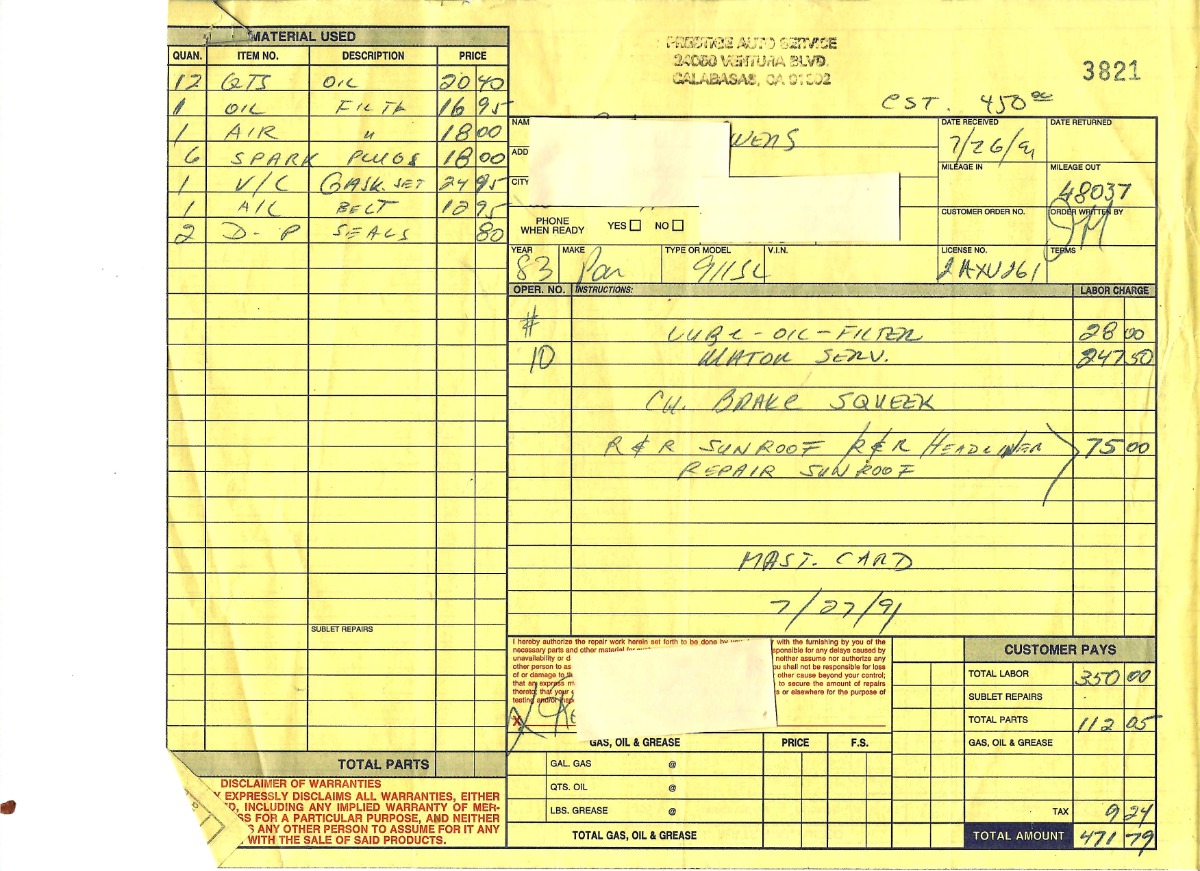 MATERIAL USED
QUAN. ITEM NO. DESCRIPTION PRICE
12 QTS OIL 20 40
1 OIL FILTR 16 95
1 AIR " 18 00
6 SPARK PLUGS 18 00
1 V/C GASK. SET 24 95
1 A/C BELT 12 95
2 D-P SEALS 80
SUBLET REPAIRS
TOTAL PARTS
DISCLAIMER OF WARRANTIES
EXPRESSLY DISCLAIMS ALL WARRANTIES, EITHER
INCLUDING ANY IMPLIED WARRANTY OF MER-
FOR A PARTICULAR PURPOSE, AND NEITHER
ANY OTHER PERSON TO ASSUME FOR IT ANY
WITH THE SALE OF SAID PRODUCTS.
PRESTIGE AUTO SERVICE
24080 VENTURA BLVD.
CALABASAS, CA 91302
3821
EST. 450 00
NAM WENS
ADD
CITY
DATE RECEIVED 7/26/91
DATE RETURNED
MILEAGE IN
MILEAGE OUT 48037
CUSTOMER ORDER NO.
ORDER WRITTEN BY
PHONE WHEN READY YES NO
YEAR 83 MAKE Por TYPE OR MODEL 911SC V.I.N. LICENSE NO. 2AXU261 TERMS
OPER. NO. INSTRUCTIONS: LABOR CHARGE
# LUBE-OIL-FILTER 28 00
10 MATOR SERV. 247 50
CH. BRAKE SQUEEK
R & R SUNROOF R&R HEADLINER 75 00
REPAIR SUNROOF
MAST. CARD
7/27/91
I hereby authorize the repair work herein set forth to be done by with the furnishing by you of the
necessary parts and other material for such sponsible for any delays caused by
unavailability or d neither assume nor authorize any
other person to as u shall not be responsible for loss
of or damage to th other cause beyond your control;
that an express m to secure the amount of repairs
thereto; that your s or elsewhere for the purpose of
testing and/or insp
X
GAS, OIL & GREASE PRICE F.S.
GAL. GAS @
QTS. OIL @
LBS. GREASE @
TOTAL GAS, OIL & GREASE
CUSTOMER PAYS
TOTAL LABOR 350 00
SUBLET REPAIRS -
TOTAL PARTS 112 05
GAS, OIL & GREASE
TAX 9 24
TOTAL AMOUNT 471 79